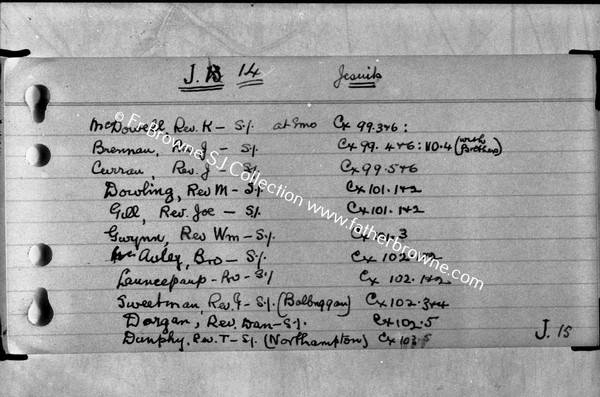 J. B 14 Jesuits
McDowell, Rev. K - S.J. at Emo Cx 99.3+6:
Brennan, Rev J - S.J. Cx 99.4+6: NO.4 (with Brothers)
Curran, Rev. J - S.J. Cx 99.5+6
Dowling, Rev M - S.J. Cx 101.1+2
Gill, Rev. Joe - S.J. Cx 101.1+2
Gwynn, Rev Wm - S.J. Cx 101.3
McAuley, Bro - S.J. Cx 102.1+2
Rev - S.J. Cx 102.1+2
Sweetman, Rev. F - S.J. (Balbriggan) Cx 102.3+4
Dargan, Rev. Dan - S.J. Cx 102.5
Dunphy, Rev. T - S.J. (Northampton) Cx 103.5
J. 15
© Fr Browne SJ Collection www.fatherbrowne.com